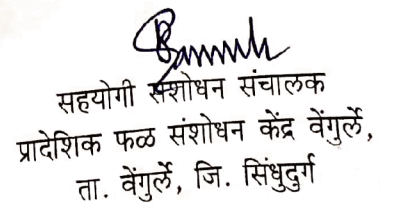 सहयोगी संशोधन संचालक
प्रादेशिक फळ संशोधन केंद्र वेंगुर्ले,
ता. वेंगुर्ले, जि. सिंधुदुर्ग